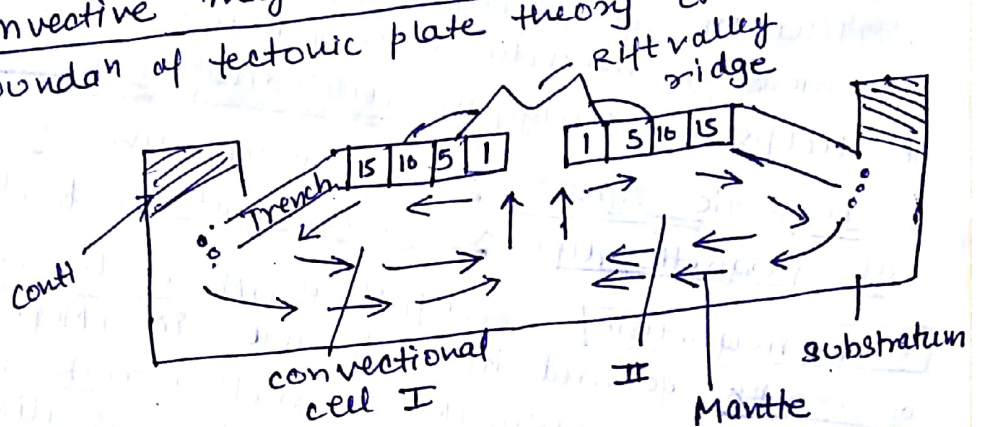 nvective
oundaⁿ of tectonic plate theory
Rift valley
ridge
15 10 5 1
1 5 10 15
Trench
Contl
convectional
cell I
II
Mantle
substratum